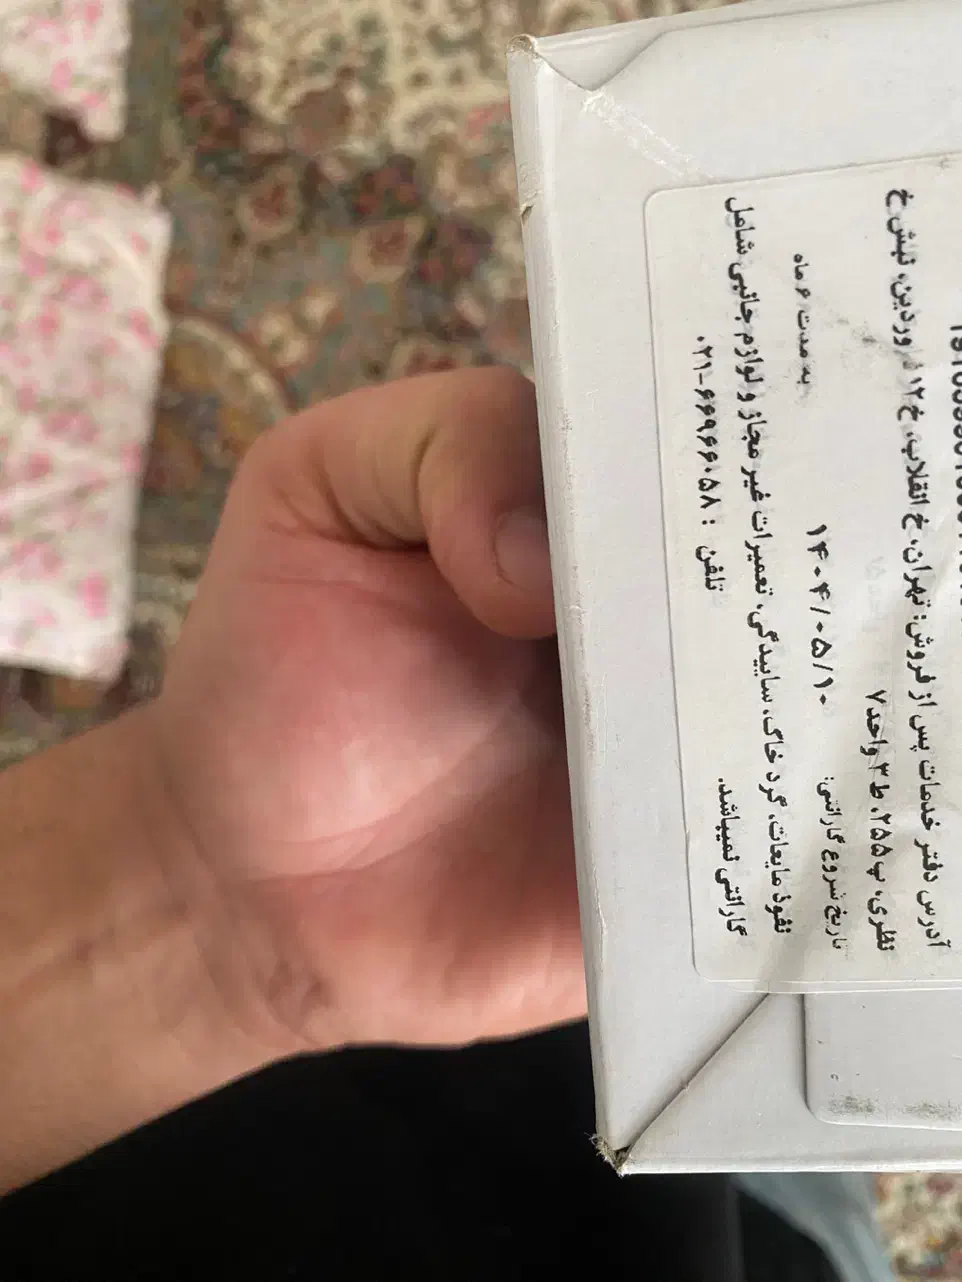 آدرس دفتر خدمات پس از فروش: تهران، خ انقلاب، خ ۱۲ فروردین، نبش خ
نظری، پ ۲۵۵، ط ۳ واحد ۷
تاریخ شروع گارانتی: ۱۴۰۴/۰۵/۱۰ به مدت ۶ ماه
نفوذ مایعات، گرد خاک، ساییدگی، تعمیرات غیر مجاز و لوازم جانبی شامل
گارانتی نمیباشد. تلفن : ۰۲۱-۶۶۹۶۶۰۵۸